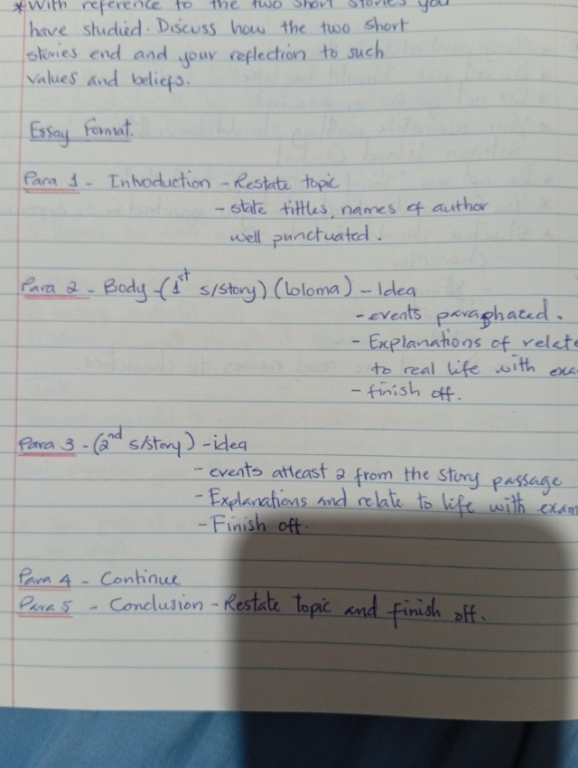 *With reference to the two short stories you
have studied. Discuss how the two short
stories end and your reflection to such
values and beliefs.
Essay Format.
Para 1 - Introduction - Restate topic
- state tittles, names of author
well punctuated.
Para 2 - Body - (1st s/story) (loloma) - Idea
- events paraphaced.
- Explanations of relate
to real life with exa
- finish off.
Para 3 - (2nd s/story) - idea
- events atleast 2 from the story passage
- Explanations and relate to life with exam
- Finish off.
Para 4 - Continue
Para 5 - Conclusion - Restate topic and finish off.